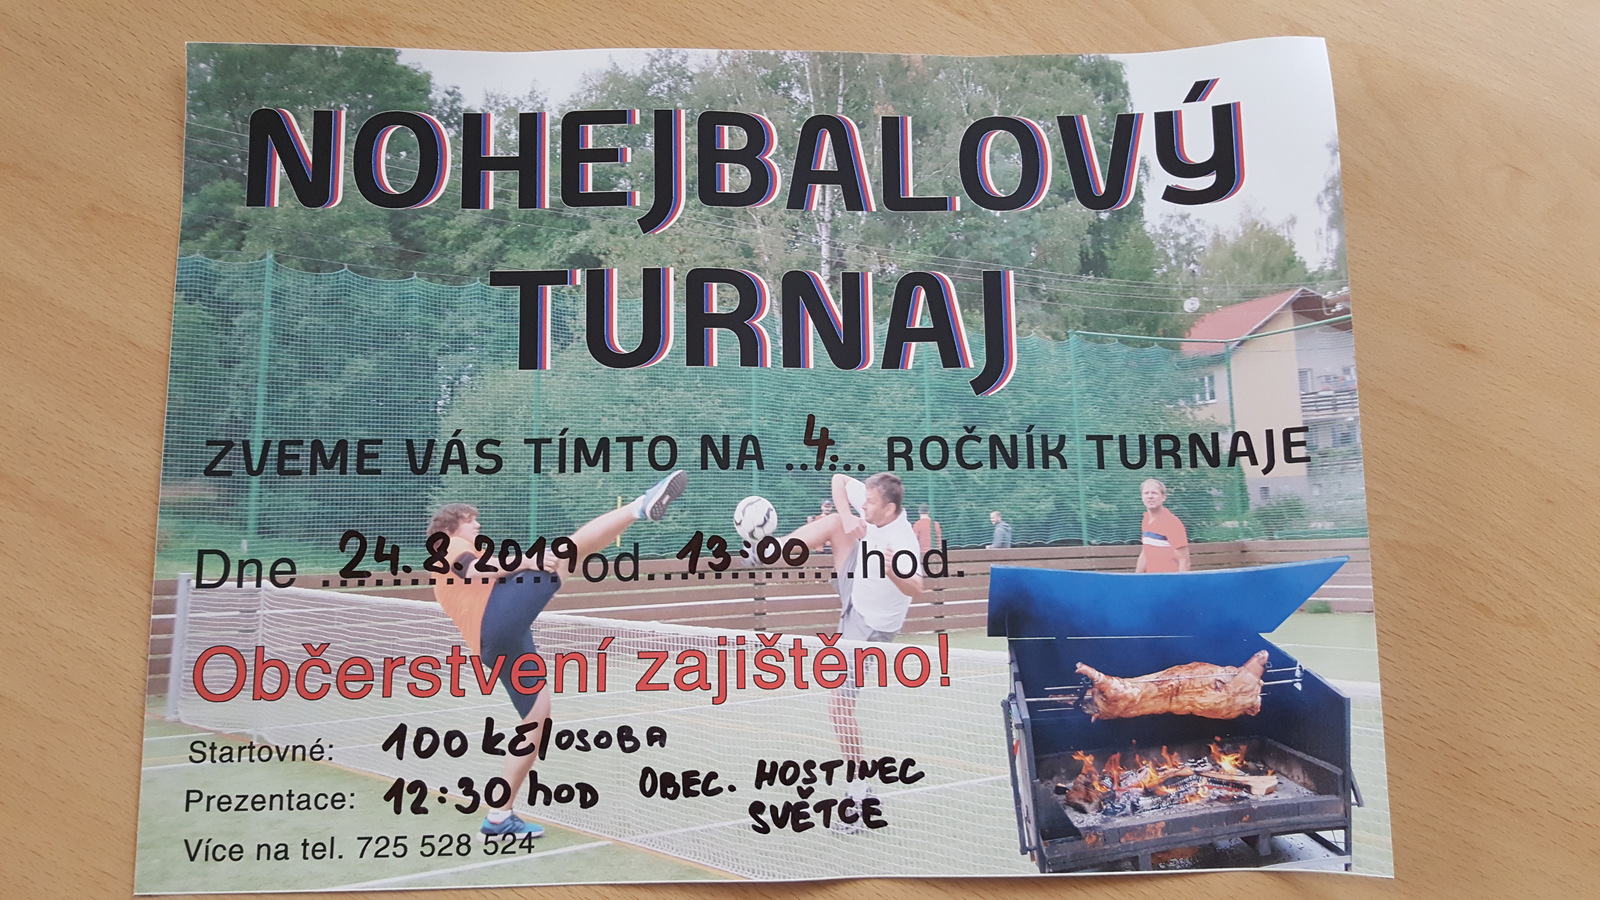 NOHEJBALOVÝ
TURNAJ
ZVEME VÁS TÍMTO NA ..4... ROČNÍK TURNAJE
Dne ...24.8.2019 od...13:00...hod.
Občerstvení zajištěno!
Startovné: 100 kč/OSOBA
Prezentace: 12:30 hOD OBEC. HOSTINEC
SVĚTCE
Více na tel. 725 528 524